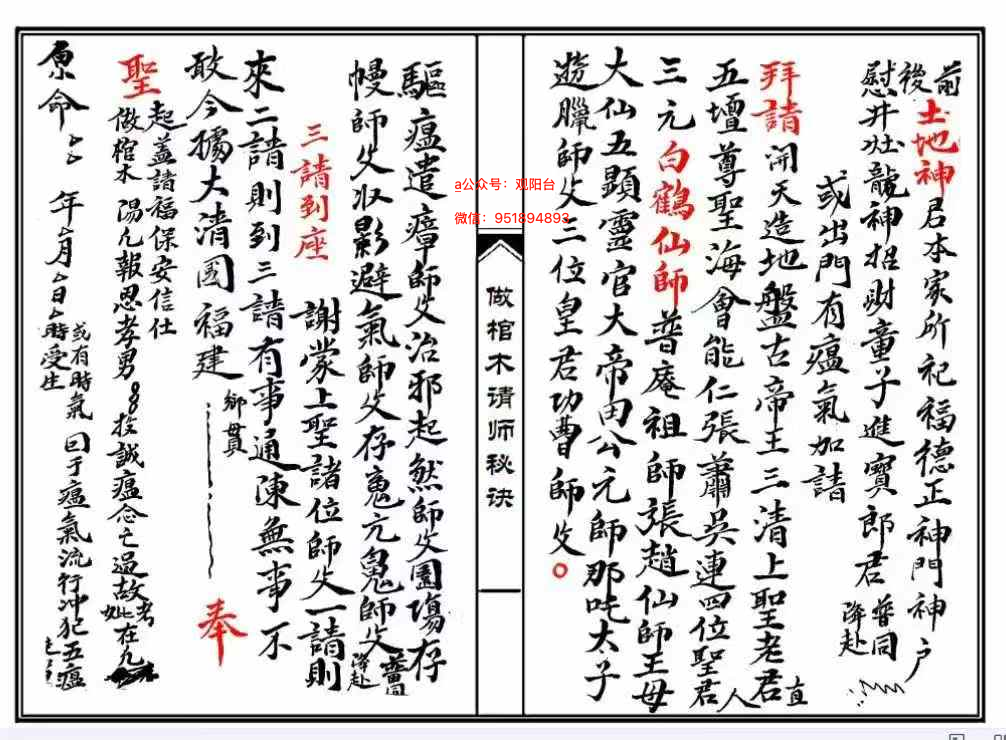 前後土地神君本家所祀福德正神門神户
慰井灶龍神招財童子進寶郎君普同降赴
或出門有瘟氣加請
拜請開天造地盤古帝王三清上聖老君直人
五壇尊聖海會能仁張蕭吳連四位聖君
三元白鶴仙師普庵祖師張趙仙師王母
大仙五顯靈官大帝田公元師那吒太子
遊臘師父三位皇君功曹師父
做棺木请师秘诀
驅瘟遣瘴師父治邪起煞師父園塲存
幔師父收影避氣師父存師父普同降赴
三請到座
謝蒙上聖諸位師父一請則
來二請則到三請有事通陳無事不
敢今據大清國福建
鄉貫
奉
聖
起蓋諸福保安信仕
做棺木湯几報恩孝男投誠瘟念亡過故考妣在九
原命年月日時受生
或有時氣曰于瘟氣流行冲犯五瘟
a公众号：观阳台
微信：951894893